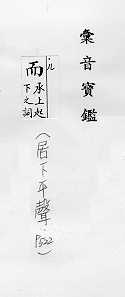 彙音寶鑑
ㆡ
而 承上起下之詞
(居下平聲.P522)